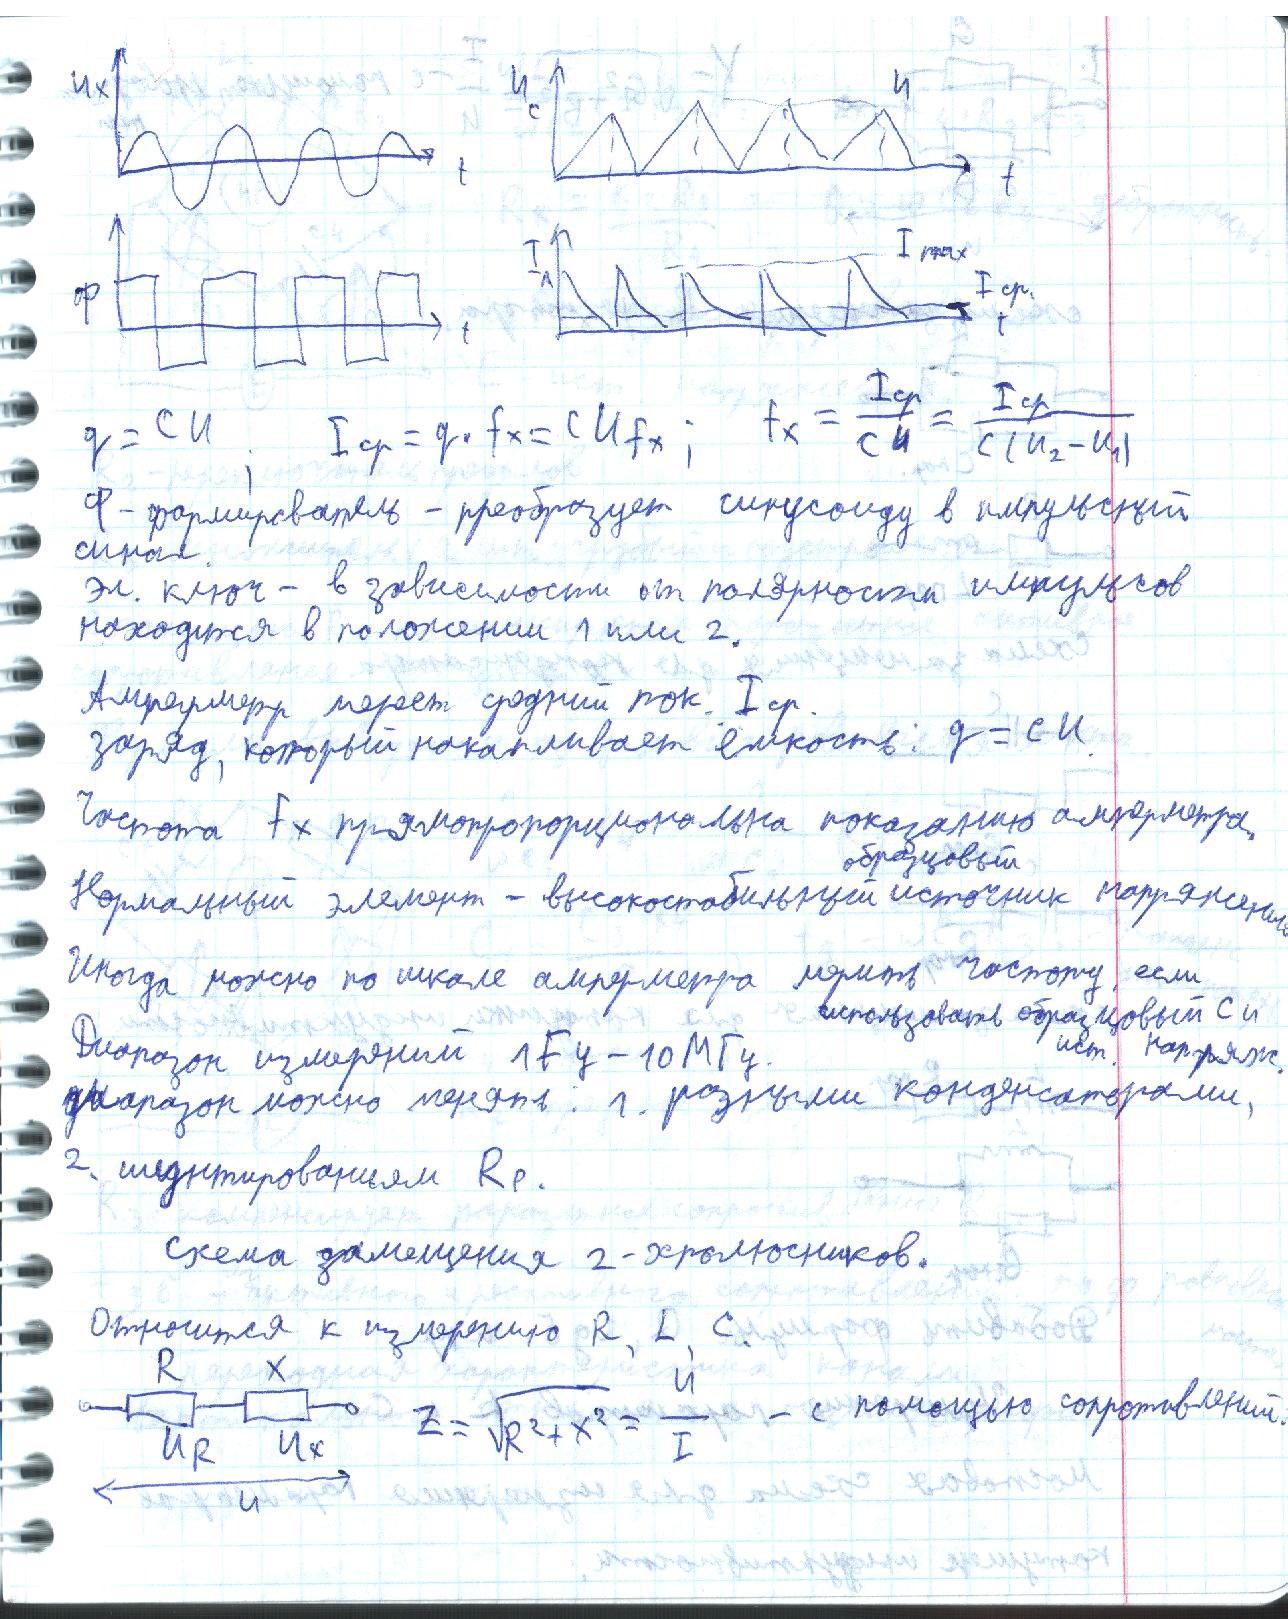 Uх t
Uс U t
Ф t
IА I max I ср. t
q = CU ; I ср = q · fx = CU fx ; fx = I ср / CU = I ср / C(U2 – U1)
Ф – формирователь – преобразует синусоиду в импульсный
сигнал.
Эл. ключ – в зависимости от полярности импульсов
находится в положении 1 или 2.
Амперметр меряет средний ток. I ср.
Заряд, который накапливает ёмкость: q = CU.
Частота fx прямопропорциональна показанию амперметра.
образцовый
Нормальный элемент – высокостабильный источник напряжения
Иногда можно по шкале амперметра мерить частоту, если
использовать образцовый С и
ист. напряж.
Диапазон измерений 1Гц – 10МГц.
Диапазон можно менять: 1. разными конденсаторами,
2. шунтированием Rр.
Схема замещения 2-хполюсников.
Относится к измерению R, L, C.
R X
Z = √R² + X² = U / I – с помощью сопротивлений.
UR Uх
U